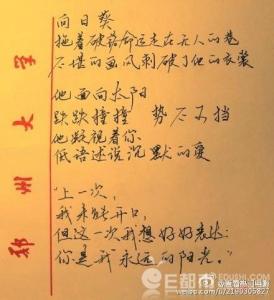 向日葵
拖着破落命运走在无人的巷
不堪的画风刺破了他的衣裳
他面向太阳
跌跌撞撞 势不可挡
他凝视着你
低语述说沉默的爱
"上一次,
我未能开口,
但这一次我想好好表达:
你是我永远的阳光。"
郑州大学
E都市
EDUSHI.COM
weibo.com/u/2199305827